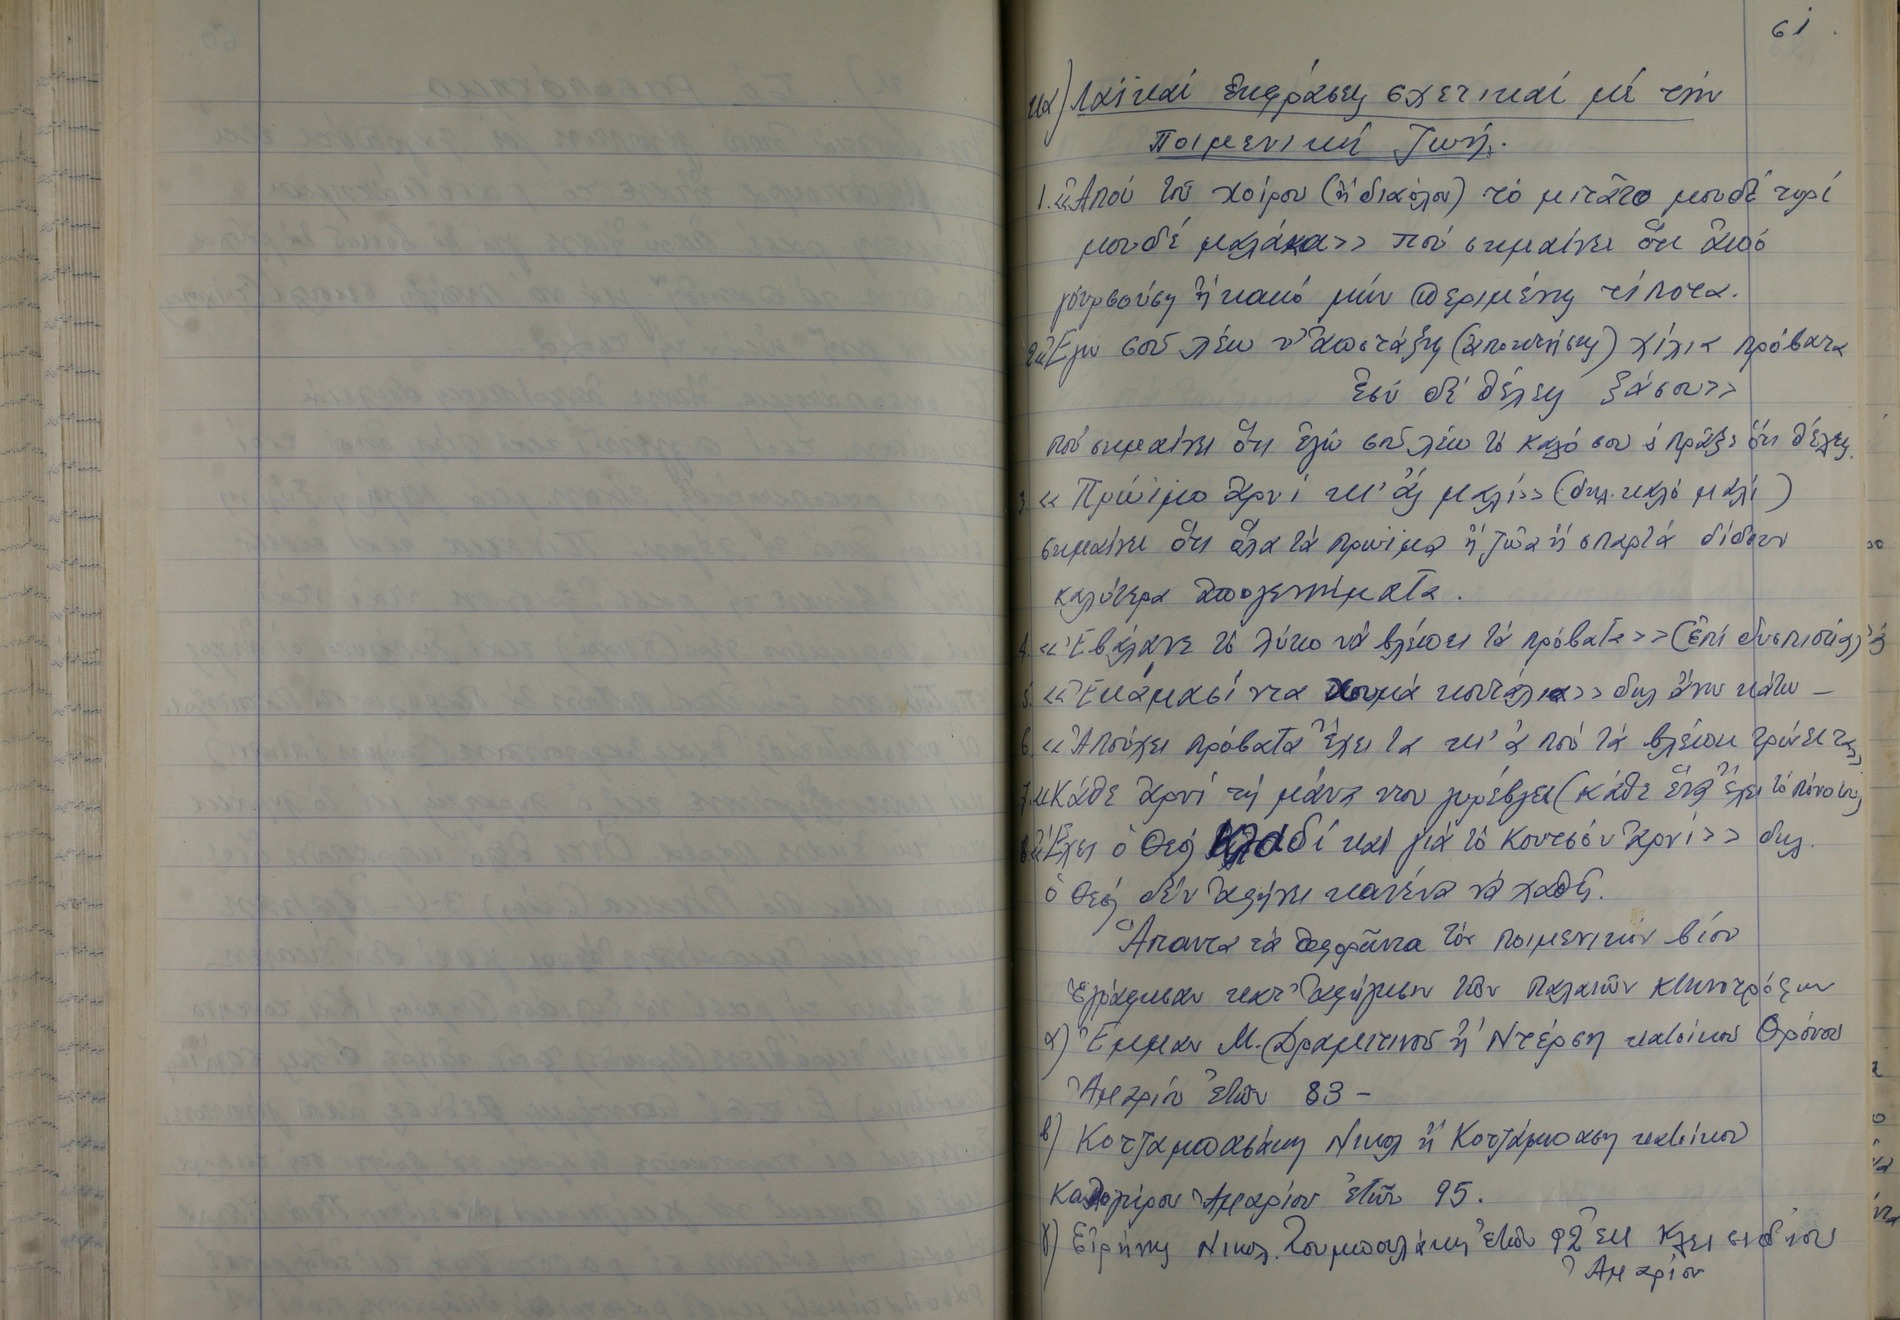 61.
κα) Λαϊκαί ἐκφράσεις σχετικαί μέ τήν
ποιμενική ζωή.
1. «Ἀπού τοῦ χοίρου (ἤ διαόλου) τό μιτᾶτο μουδέ τυρί
μουδέ μαλάκα» πού σημαίνει ὅτι ἀπό
γουρσούζη ἤ κακό μήν περιμένης τίποτα.
2. «Ἐγώ σοῦ λέω ν' ἀποτάξης (ἀποκτήσης) χίλια πρόβατα
Ἐσύ δέ θέλεις ξάσου»
πού σημαίνει ὅτι ἐγώ σοῦ λέω τό καλό σου ἐ πρᾶξε ὅτι θέλεις.
3. «Πρώϊμο ἀρνί κι' ἄς μαλί» (δηλ. καλό μαλί)
σημαίνει ὅτι ὅλα τά πρώϊμα ἤ ζῶα ἤ σπαρτά δίδουν
καλύτερα ἀπογεννήματα.
4. «Ἐβάλανε τό λύκο νά βλέπει τά πρόβατα» (ἐπί δυσπιστίας)
5. «Ἐκάμασί ντα κουτάλια» δηλ ἄνω κάτω –
6. «Ἀπούχει πρόβατα ἔχει τα κι' ἀ πού τά βλέπει τρώει τα»
7. «Κάθε ἀρνί τή μάνα ντου γυρέβγει (κάθε ἕνας ἔχει τό πόνο του)
8. «Ἔχει ὁ Θεός κλαδί καί γιά τό κουτσόν ἀρνί» δηλ.
ὁ Θεός δέν ἀφήνει κανένα νά χαθῆ.
Ἅπαντα τά ἀφορῶντα τόν ποιμενικόν βίον
ἐγράφησαν κατ' ἀφήγησιν τῶν παλαιῶν κτηνοτρόφων
α) Ἐμμαν Μ. Δραμιτινοῦ ἤ Ντέρση κατοίκου Θρόνου
Ἀμαρίου ἐτῶν 83 –
β) Κοτζαμπασάκη Νικολ ἤ Κοτζάμπαση κατοίκου
Καλογήρου Ἀμαρίου ἐτῶν 95.
γ) Εἰρήνης Νικολ. Τουμπουλάκη ἐτῶν 92 ἐκ Κλεισιδίου
Ἀμαρίου